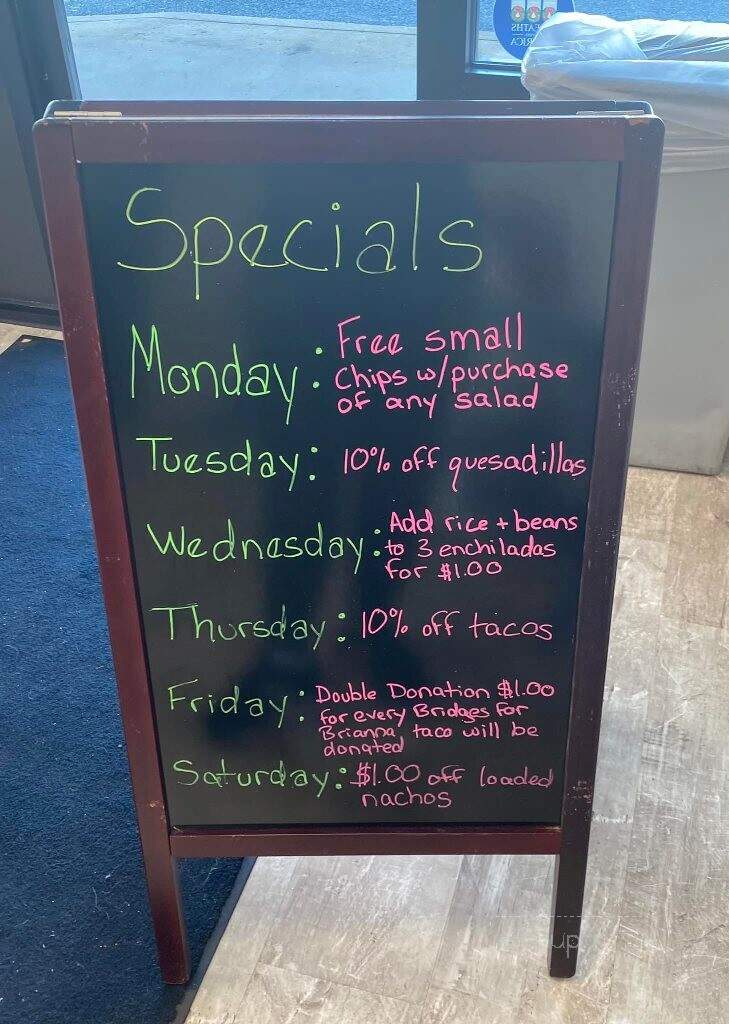 Specials
Monday: Free small
chips w/purchase
of any salad
Tuesday: 10% off quesadillas
Wednesday: Add rice + beans
to 3 enchiladas
for $1.00
Thursday: 10% off tacos
Friday: Double Donation $1.00
for every Bridges for
Brianna taco will be
donated
Saturday: $1.00 off loaded
nachos
up